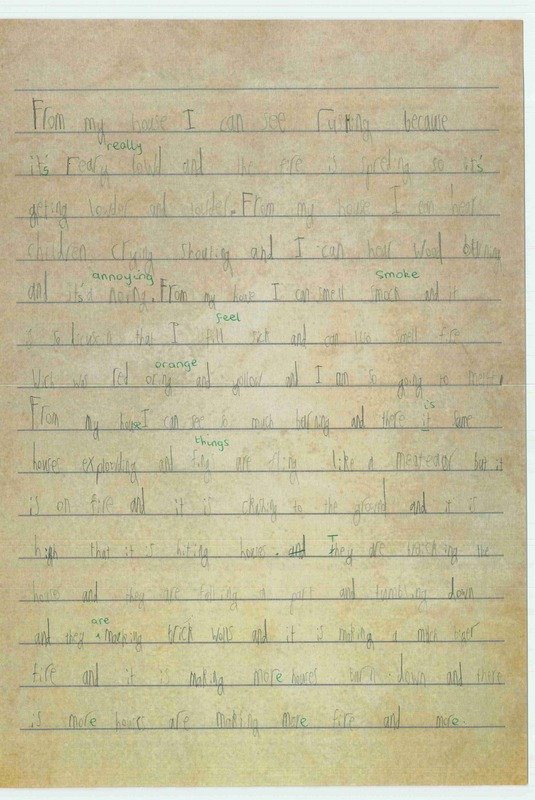 From my house I can see running because
really
it's Feary loud and the fire is spreding so it's
geting louder and louder. From my house I can hear
children crying shouting and I can hear wood burning
annoying smoke
and it's a noing. From my house I can smell smock and it
feel
is so that I sick and can also smell fire
orange
Wich was red oring and yellow and I am so going to
is
From my house I can see so much burning and there it some
things
houses exploding and fings are fling like a meateor but it
is on fire and it is crasing to the ground and it is
high that it is hiting houses. and They are the
house and they are falling a part and tumbling down
are
and they making brick wals and it is making a much biger
fire and it is making more houses burn down and there
is more houses are making more fire and more.